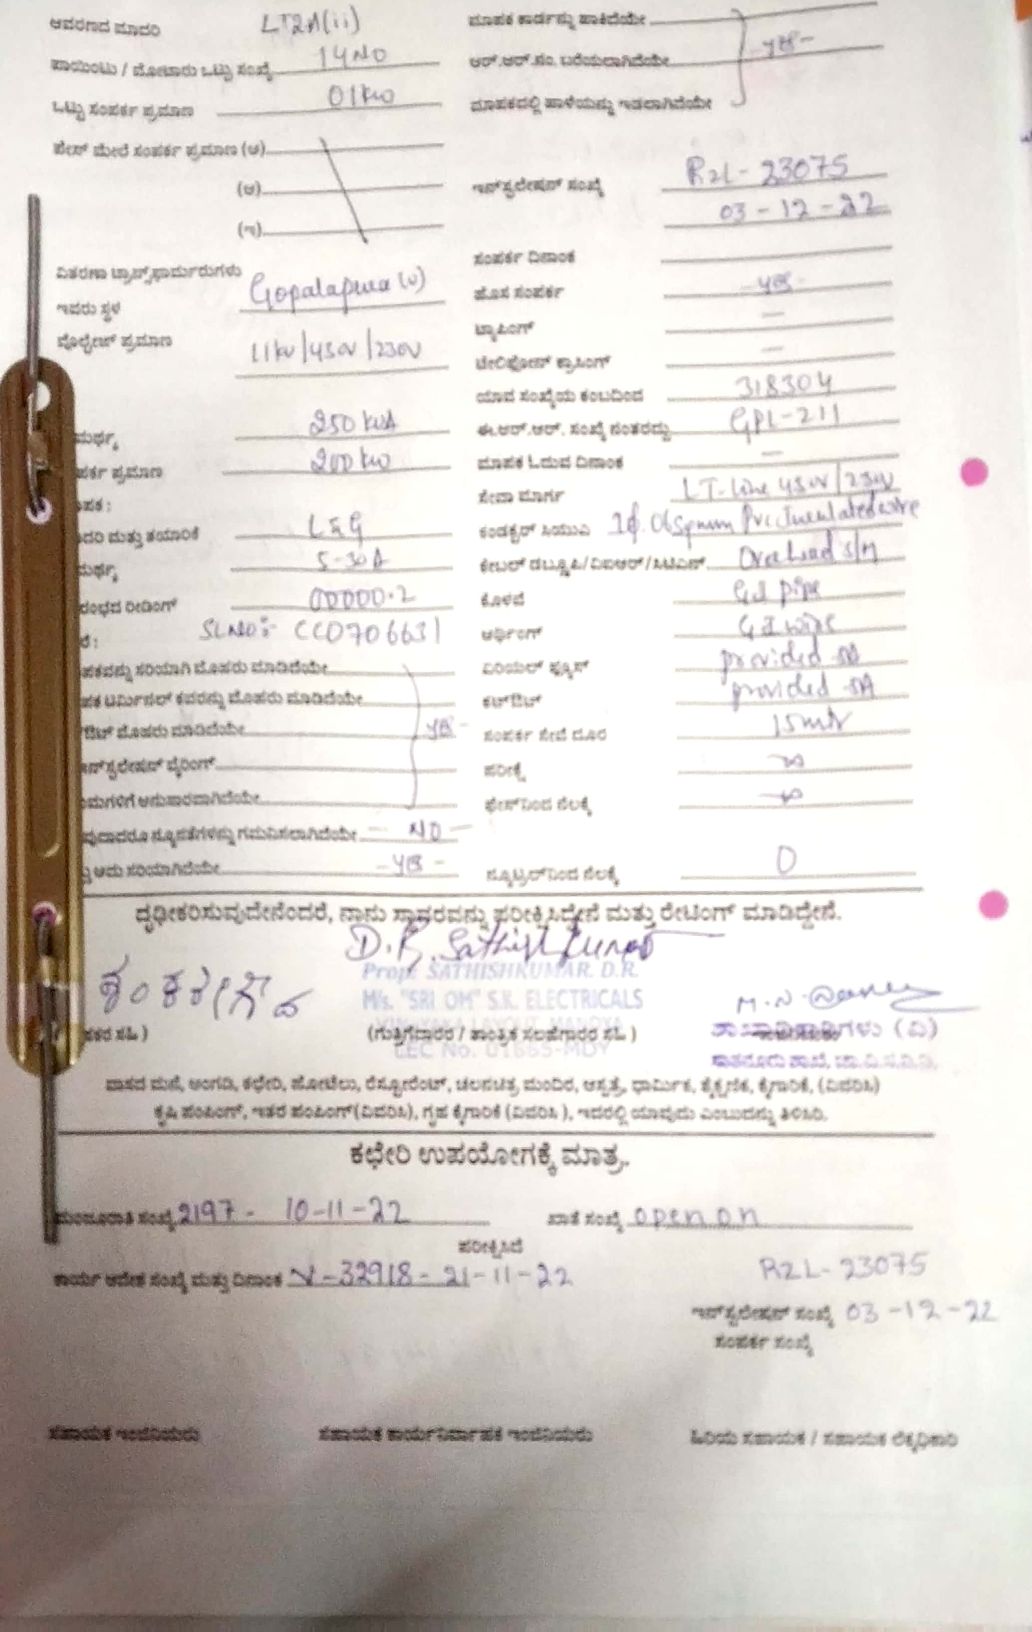 ಆವರಣದ ಮಾದರಿ LT2A(ii)
ಪಾಯಿಂಟು / ಮೋಟಾರು ಒಟ್ಟು ಸಂಖ್ಯೆ 14 NO
ಒಟ್ಟು ಸಂಪರ್ಕ ಪ್ರಮಾಣ 01kw
ಫೇಸ್ ಮೇಲೆ ಸಂಪರ್ಕ ಪ್ರಮಾಣ (ಅ)
(ಆ)
(ಇ)
ವಿತರಣಾ ಟ್ರಾನ್ಸ್‌ಫಾರ್ಮರುಗಳು
ಇವರು ಸ್ಥಳ Gopalapura (v)
ವೋಲ್ಟೇಜ್ ಪ್ರಮಾಣ 11kv/430v/230v
ಮರ್ಥ್ಯ 250 kvA
ಪರ್ಕ ಪ್ರಮಾಣ 200 kw
ಪಕ :
ದರಿ ಮತ್ತು ತಯಾರಿಕೆ L&G
ಮರ್ಥ್ಯ 5-30A
ರಂಭದ ರೀಡಿಂಗ್ 00000.2
SL NO:- CC0706631
ಪಕವನ್ನು ಸರಿಯಾಗಿ ಮೊಹರು ಮಾಡಿದೆಯೇ
ಪಕ ಟರ್ಮಿನಲ್ ಕವರನ್ನು ಮೊಹರು ಮಾಡಿದೆಯೇ
ಔಟ್ ಮೊಹರು ಮಾಡಿದೆಯೇ yes
ನ್‌ಸ್ಟಲೇಷನ್ ವೈರಿಂಗ್
ಯಮಗಳಿಗೆ ಅನುಸಾರವಾಗಿದೆಯೇ
ವುದಾದರೂ ನ್ಯೂನತೆಗಳನ್ನು ಗಮನಿಸಲಾಗಿದೆಯೇ NO
ಅದು ಸರಿಯಾಗಿದೆಯೇ - yes -
ಮಾಪಕ ಕಾರ್ಡನ್ನು ಹಾಕಿದೆಯೇ
ಆರ್.ಆರ್.ನಂ. ಬರೆಯಲಾಗಿದೆಯೇ yes -
ಮಾಪಕದಲ್ಲಿ ಹಾಳೆಯನ್ನು ಇಡಲಾಗಿದೆಯೇ
ಇನ್‌ಸ್ಟಲೇಷನ್ ಸಂಖ್ಯೆ R2L - 23075
03 - 12 - 22
ಸಂಪರ್ಕ ದಿನಾಂಕ
ಹೊಸ ಸಂಪರ್ಕ - yes -
ಟ್ಯಾಪಿಂಗ್ —
ಟೆಲಿಫೋನ್ ಕ್ರಾಸಿಂಗ್ —
ಯಾವ ಸಂಖ್ಯೆಯ ಕಂಬದಿಂದ 318304
ಈ.ಆರ್.ಆರ್. ಸಂಖ್ಯೆ ನಂತರದ್ದು GPL-211
ಮಾಪಕ ಓದುವ ದಿನಾಂಕ —
ಸೇವಾ ಮಾರ್ಗ LT-line 430v/230v
ಕಂಡಕ್ಟರ್ ಸಿಯುಎ
ಕೇಬಲ್ ಡಬ್ಲ್ಯೂಪಿ/ವಿಐಆರ್/ಸಿಟಿಎಸ್
ಕೊಳವೆ G.I pipe
ಅರ್ಥಿಂಗ್ G.I wire
ಏರಿಯಲ್ ಫ್ಯೂಸ್ provided
ಕಟ್‌ಔಟ್ provided
ಸಂಪರ್ಕ ಸೇವೆ ದೂರ 15
ಪರೀಕ್ಷೆ ∞
ಫೇಸ್‌ನಿಂದ ನೆಲಕ್ಕೆ ∞
ನ್ಯೂಟ್ರಲ್‌ನಿಂದ ನೆಲಕ್ಕೆ 0
ದೃಢೀಕರಿಸುವುದೇನೆಂದರೆ, ನಾನು ಸ್ಥಾವರವನ್ನು ಪರೀಕ್ಷಿಸಿದ್ದೇನೆ ಮತ್ತು ರೇಟಿಂಗ್ ಮಾಡಿದ್ದೇನೆ.
D.R. Sathish Kumar
Prop: SATHISHKUMAR. D.R.
ಶಂಕರೇಗೌಡ M/s. "SRI OM" S.K. ELECTRICALS
ಹಕರ ಸಹಿ ) (ಗುತ್ತಿಗೆದಾರರ / ತಾಂತ್ರಿಕ ಸಲಹೆಗಾರರ ಸಹಿ ) ಶಾಖಾಧಿಕಾರಿಗಳು (ವಿ)
LEC No. 01665-MDY
ವಾಸದ ಮನೆ, ಅಂಗಡಿ, ಕಛೇರಿ, ಹೋಟೆಲು, ರೆಸ್ಟೋರೆಂಟ್, ಚಲನಚಿತ್ರ ಮಂದಿರ, ಆಸ್ಪತ್ರೆ, ಧಾರ್ಮಿಕ, ಶೈಕ್ಷಣಿಕ, ಕೈಗಾರಿಕೆ, (ವಿವರಿಸಿ)
ಕೃಷಿ ಪಂಪಿಂಗ್, ಇತರ ಪಂಪಿಂಗ್ (ವಿವರಿಸಿ), ಗೃಹ ಕೈಗಾರಿಕೆ (ವಿವರಿಸಿ ), ಇದರಲ್ಲಿ ಯಾವುದು ಎಂಬುದನ್ನು ತಿಳಿಸಿರಿ.
ಕಛೇರಿ ಉಪಯೋಗಕ್ಕೆ ಮಾತ್ರ.
ಮಂಜೂರಾತಿ ಸಂಖ್ಯೆ 2197 - 10-11-22 ಖಾತೆ ಸಂಖ್ಯೆ open on
ಪರೀಕ್ಷಿಸಿದೆ
ಕಾರ್ಯ ಆದೇಶ ಸಂಖ್ಯೆ ಮತ್ತು ದಿನಾಂಕ V-32918 - 21-11-22 R2L - 23075
ಇನ್‌ಸ್ಟಲೇಷನ್ ಸಂಖ್ಯೆ 03 -12 -22
ಸಂಪರ್ಕ ಸಂಖ್ಯೆ
ಸಹಾಯಕ ಇಂಜಿನಿಯರು ಸಹಾಯಕ ಕಾರ್ಯನಿರ್ವಾಹಕ ಇಂಜಿನಿಯರು ಹಿರಿಯ ಸಹಾಯಕ / ಸಹಾಯಕ ಲೆಕ್ಕಾಧಿಕಾರಿ